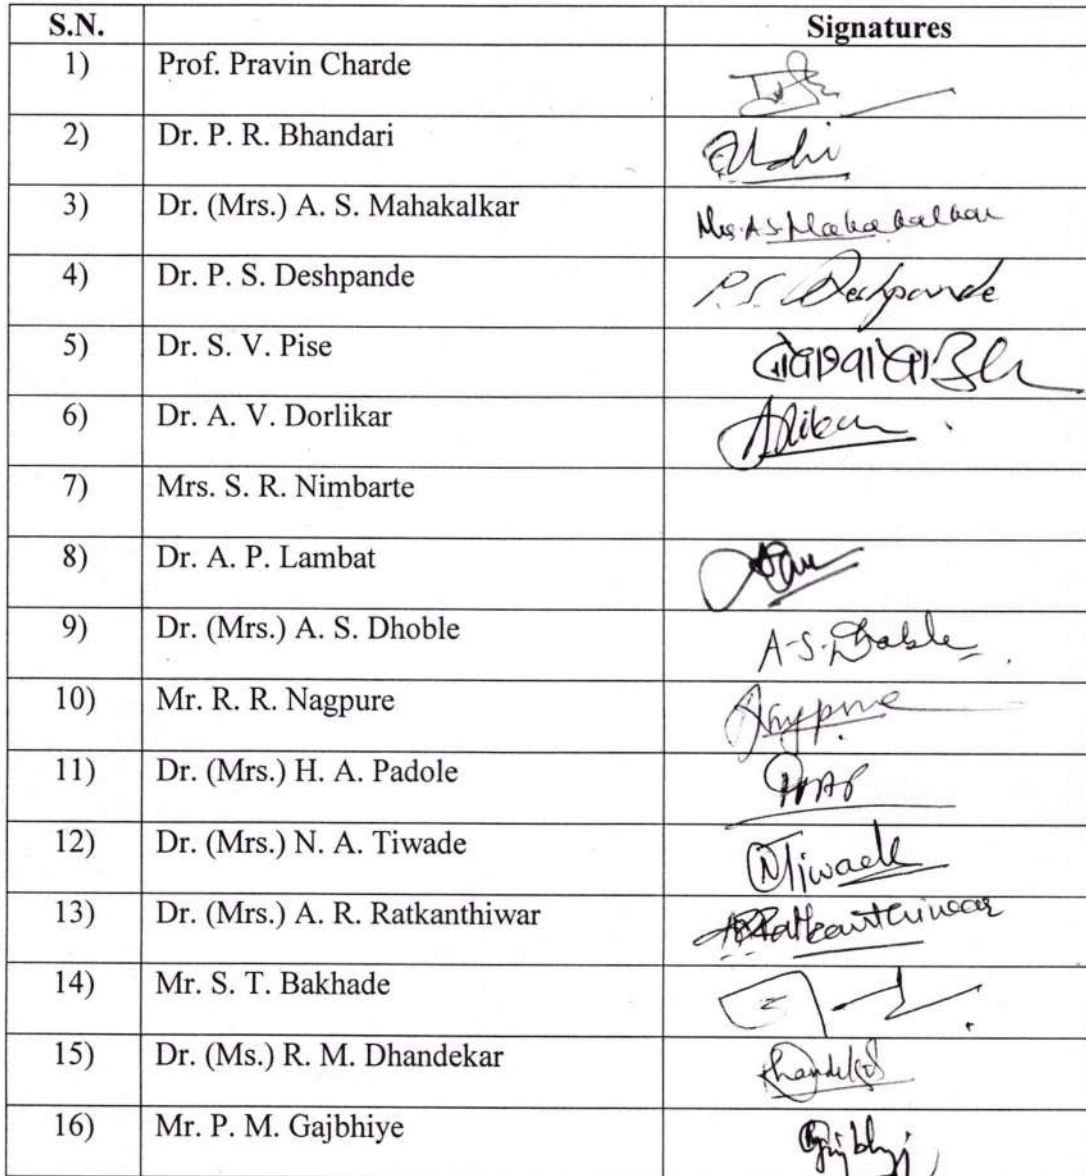 S.N. Signatures
1) Prof. Pravin Charde
2) Dr. P. R. Bhandari
3) Dr. (Mrs.) A. S. Mahakalkar Mrs. A. S. Mahakalkar
4) Dr. P. S. Deshpande P. S. Deshpande
5) Dr. S. V. Pise
6) Dr. A. V. Dorlikar
7) Mrs. S. R. Nimbarte
8) Dr. A. P. Lambat
9) Dr. (Mrs.) A. S. Dhoble A-S. Dhoble
10) Mr. R. R. Nagpure
11) Dr. (Mrs.) H. A. Padole
12) Dr. (Mrs.) N. A. Tiwade NTiwade
13) Dr. (Mrs.) A. R. Ratkanthiwar ARRatkanthiwar
14) Mr. S. T. Bakhade
15) Dr. (Ms.) R. M. Dhandekar
16) Mr. P. M. Gajbhiye